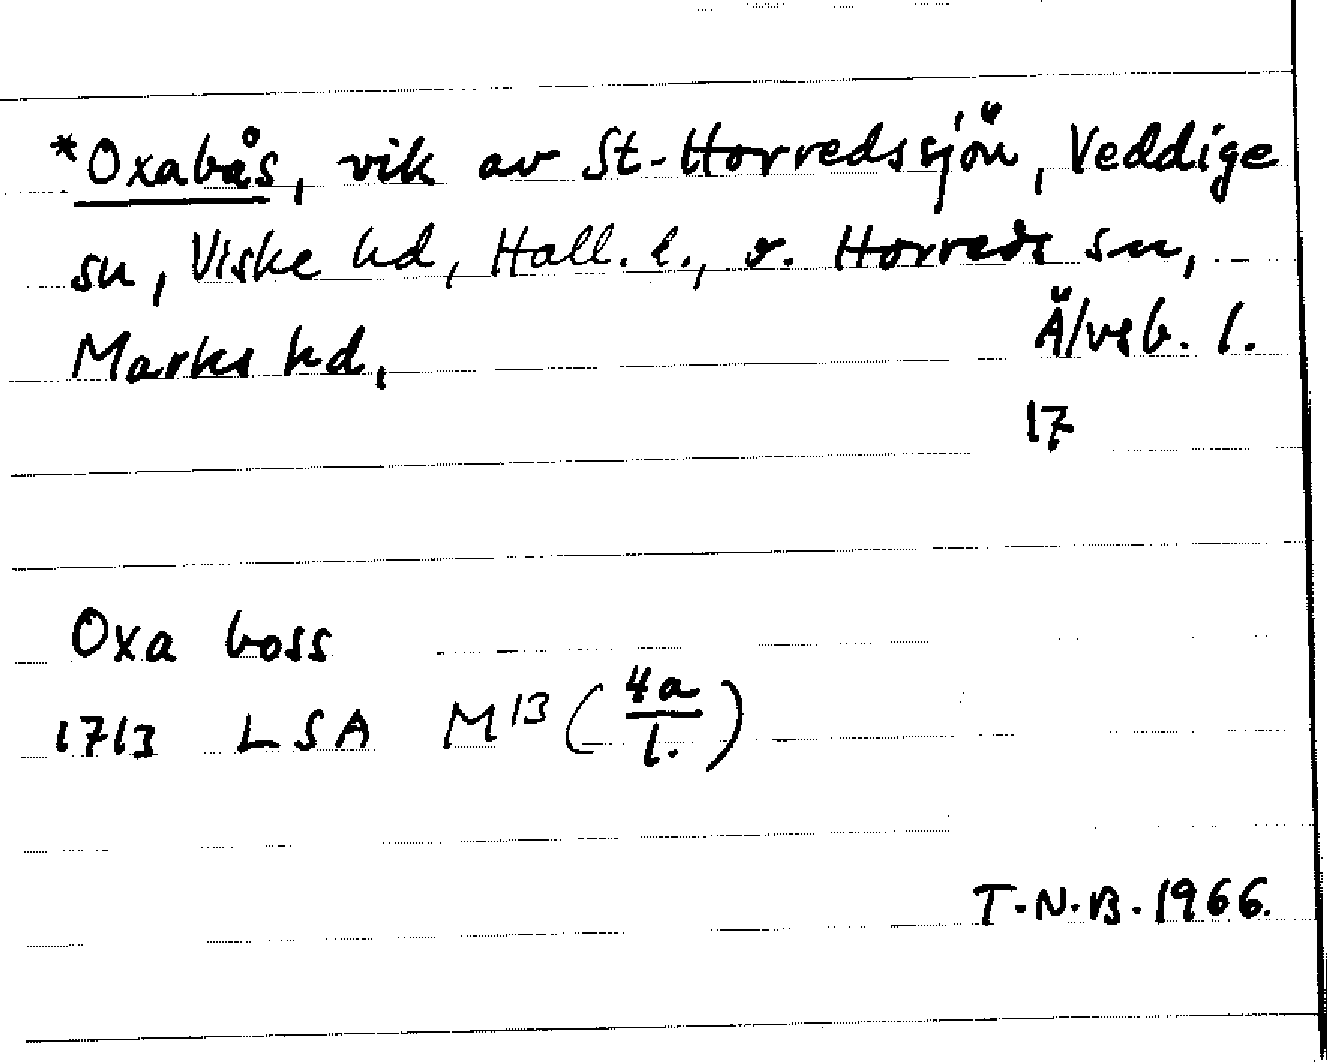 *Oxabås, vik av St-Horredssjön, Veddige
sn, Viske hd, Hall. l., o. Horreds sn,
Marks hd, Älvsb. l.
17
Oxa boss
1713 LSA M13 (4a/1.)
T.N.B. 1966.